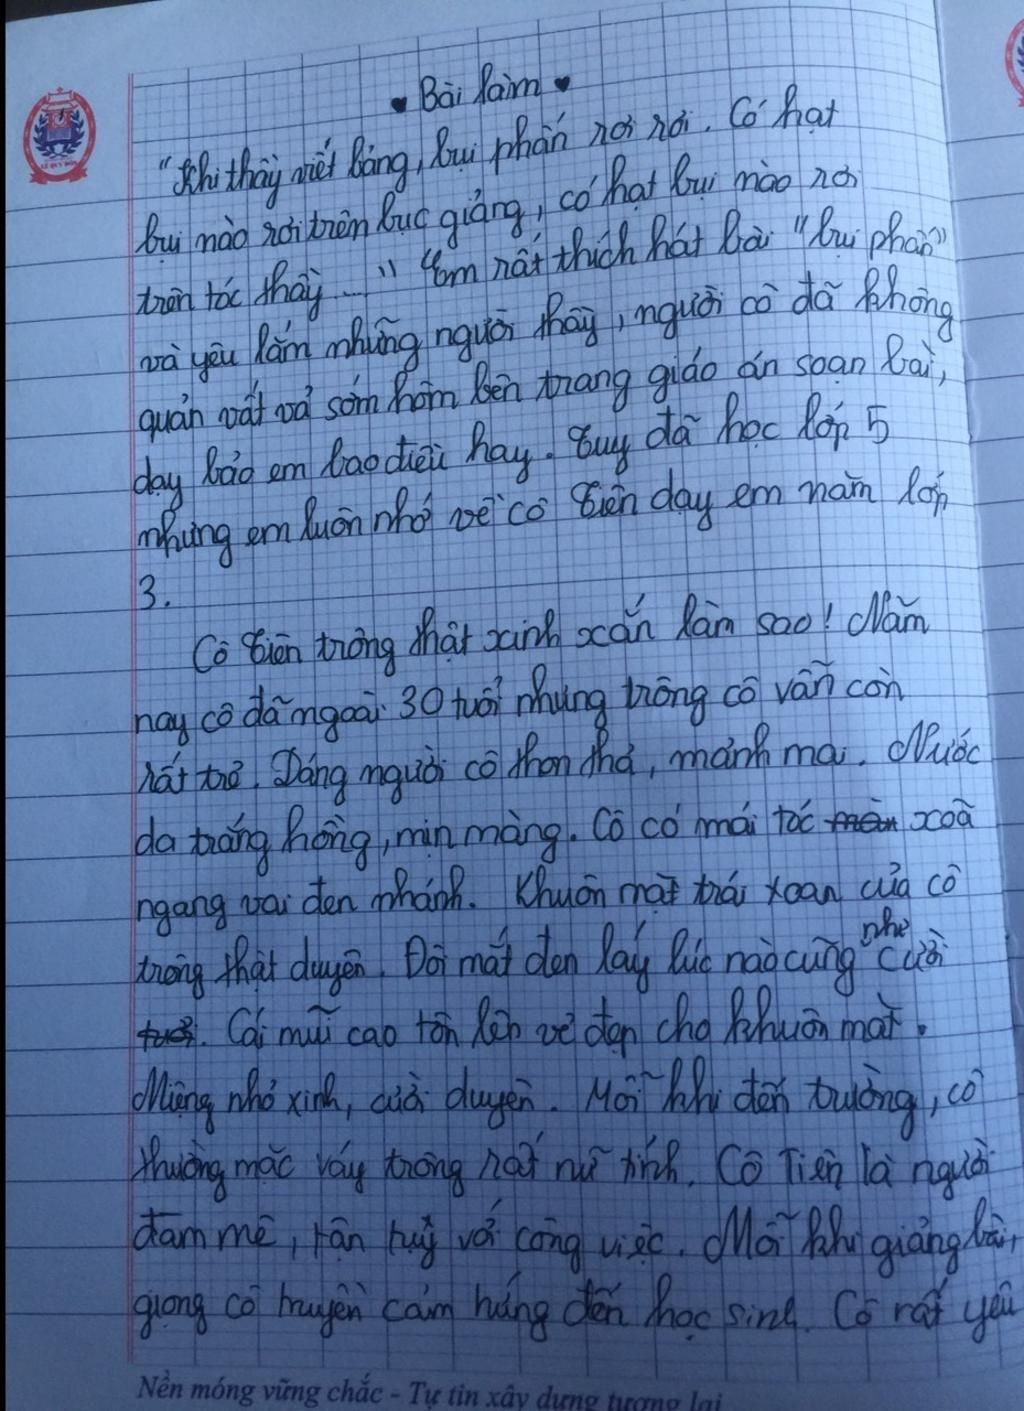 ♥ Bài làm ♥
"Khi thầy viết bảng, bụi phấn rơi rơi. Có hạt
bụi nào rơi trên bục giảng, có hạt bụi nào rơi
trên tóc thầy ..." Em rất thích hát bài "bụi phấn"
và yêu lắm những người thầy, người cô đã không
quản vất vả sớm hôm bên trang giáo án soạn bài,
dạy bảo em bao điều hay. Tuy đã học lớp 5
nhưng em luôn nhớ về cô Tiên dạy em năm lớp
3.
Cô Tiên trông thật xinh xắn làm sao! Năm
nay cô đã ngoài 30 tuổi nhưng trông cô vẫn còn
rất trẻ. Dáng người cô thon thả, mảnh mai. Nước
da trắng hồng, mịn màng. Cô có mái tóc xoã
ngang vai đen nhánh. Khuôn mặt trái xoan của cô
trông thật duyên. Đôi mắt đen láy lúc nào cũng như cười
. Cái mũi cao tôn lên vẻ đẹp cho khuôn mặt.
Miệng nhỏ xinh, cười duyên. Mỗi khi đến trường, cô
thường mặc váy trông rất nữ tính. Cô Tiên là người
đam mê, tận tuỵ với công việc. Mỗi khi giảng bài,
giọng cô truyền cảm hứng đến học sinh. Cô rất yêu
Nền móng vững chắc - Tự tin xây dựng tương lai